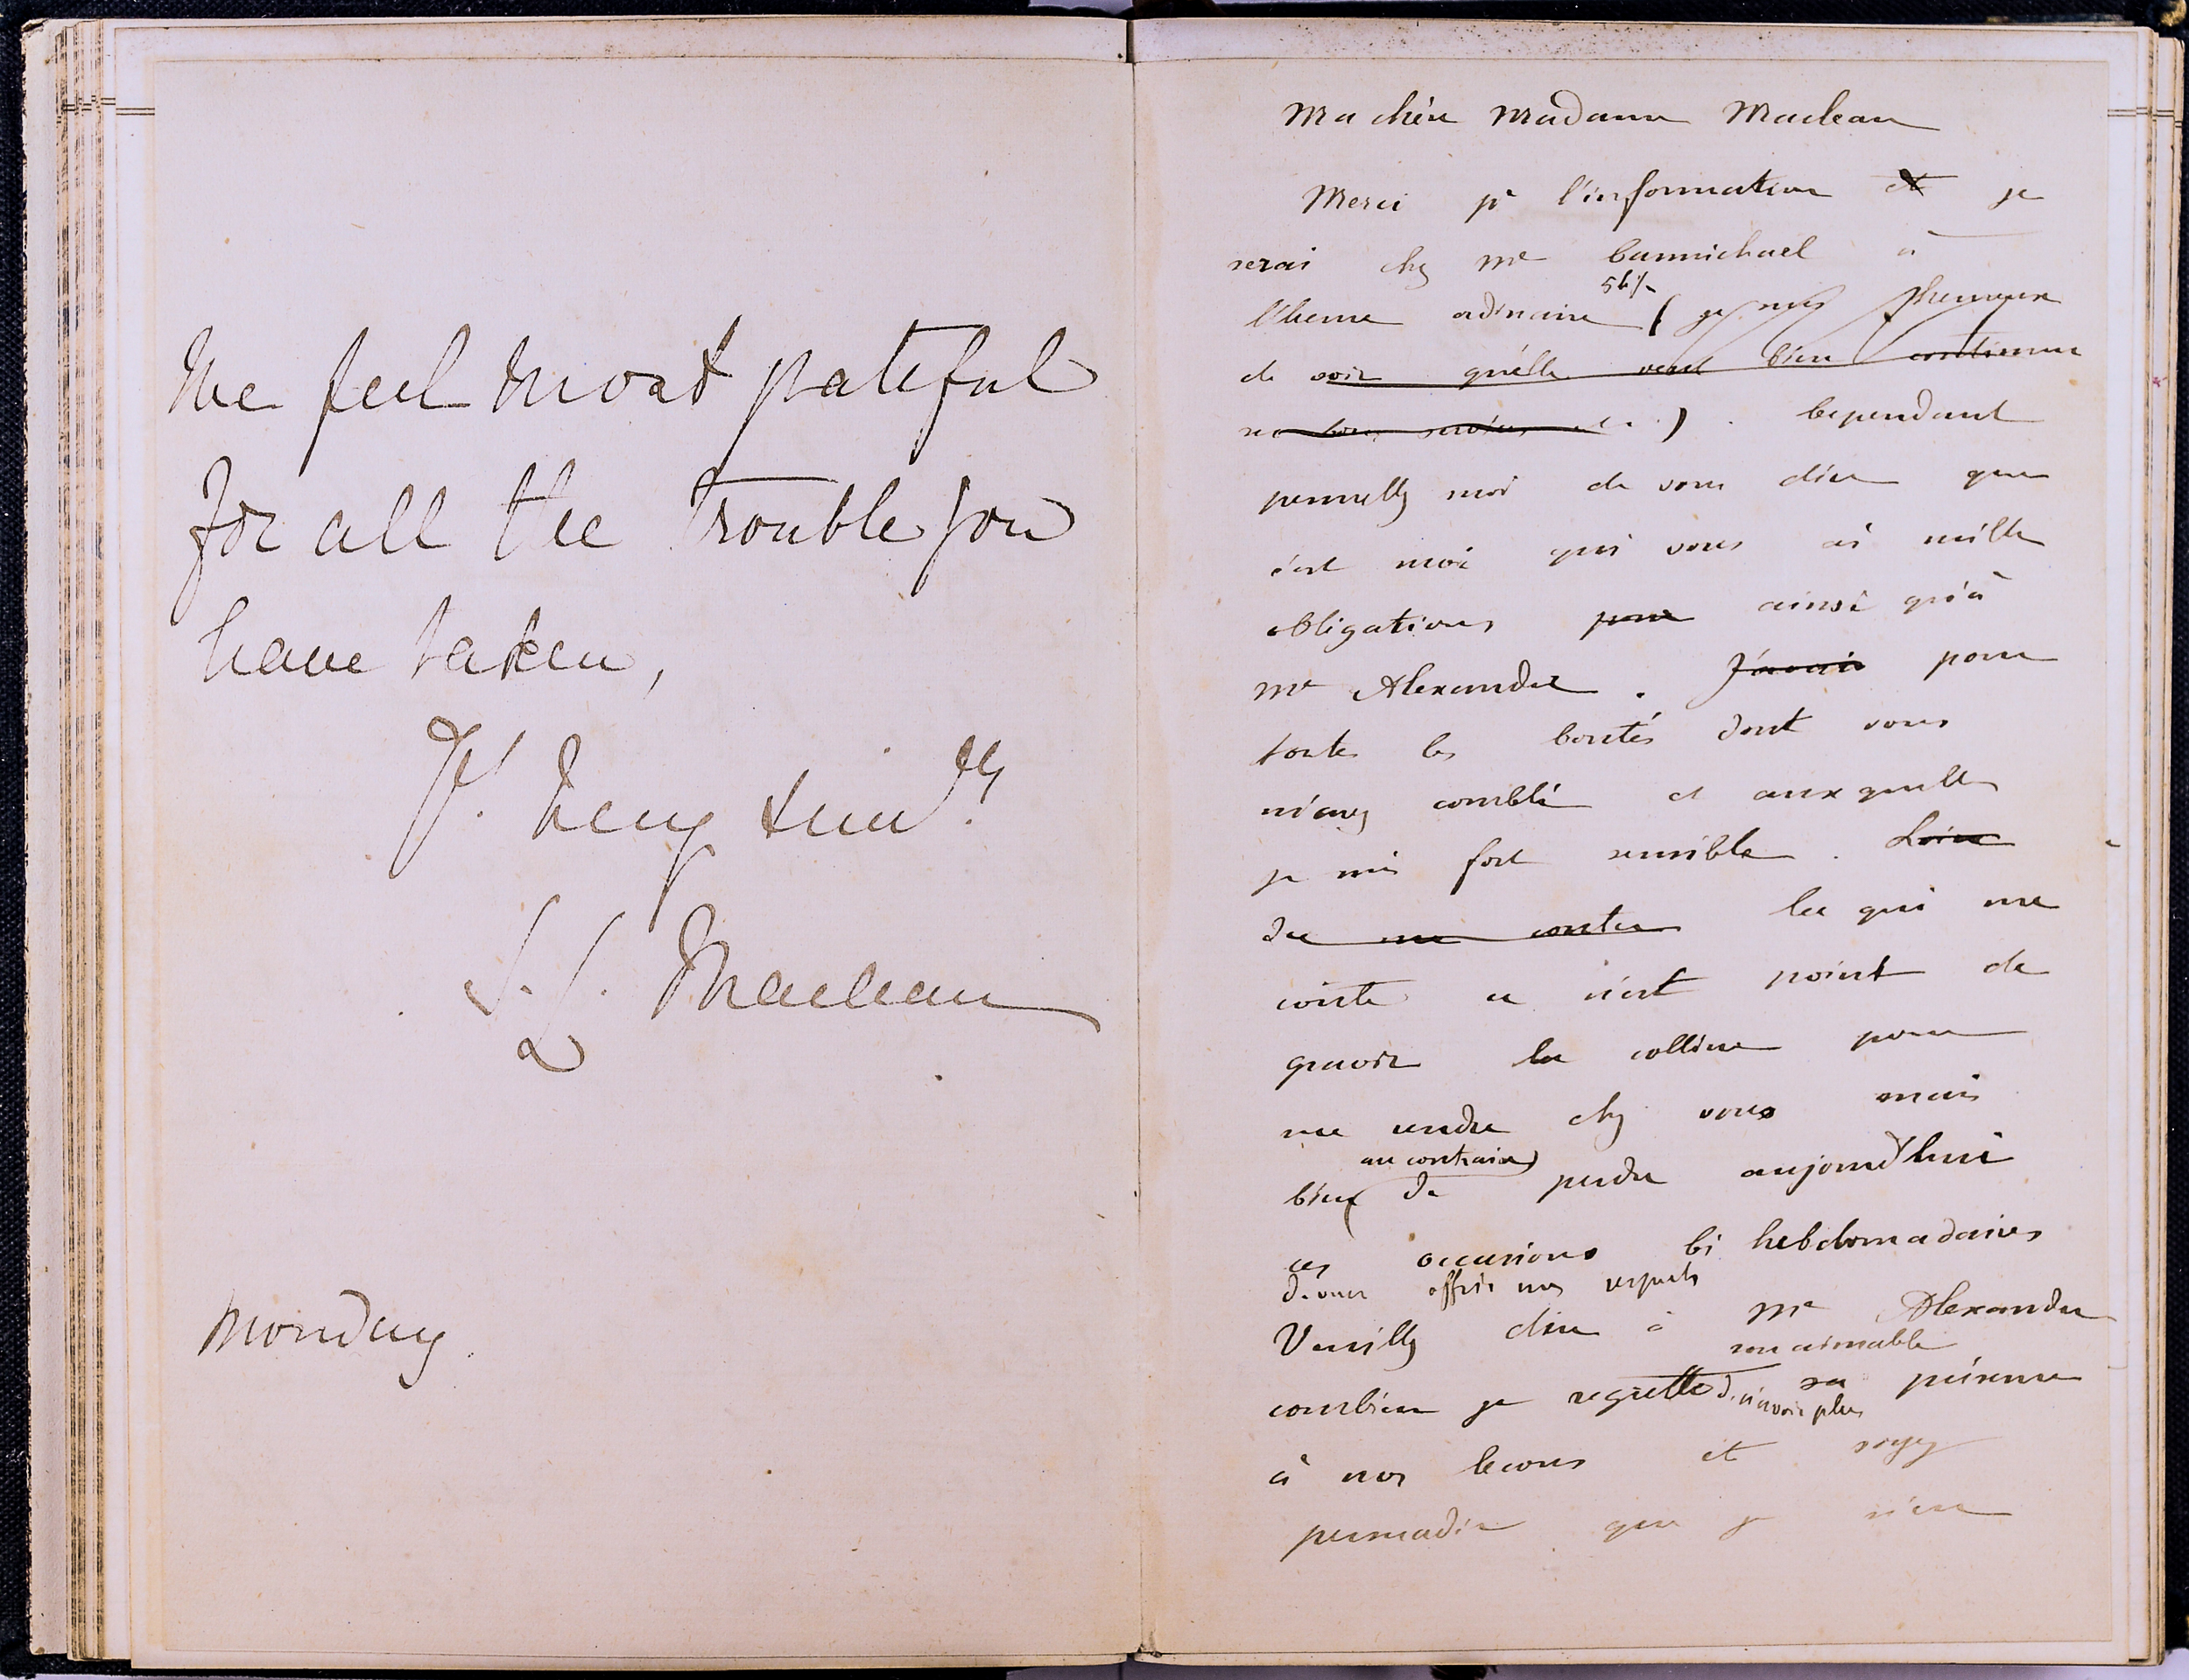 We feel most grateful
for all the trouble you
have taken,
Yrs. Very sincly.
L. L. Maclean
Monday.
Ma chère Madame Maclean
Merci pr l'information et je
serai chez Me Carmichael à
l'heure ordinaire 5h½ ( je suis heureux
de voir qu'elle veut bien continuer
). Cependant
permettez moi de vous dire que
c'est moi qui vous ai mille
obligations pour ainsi qu'à
Me Alexander. J'avais pour
toutes les bontés dont vous
m'avez comblé et auxquelles
je suis fort sensible. Loin
de me couter Ce qui me
coûte ce n'est point de
gravir la colline pour
me rendre chez vous mais
au contraire
bien de perdre aujourd'hui
ces occasions bi hebdomadaires
de vous offrir mes respects
Veuillez dire à Me Alexander
son aimable
combien je regrette de n'avoir plus sa présence
à nos leçons et soyez
persuadée que je n'en